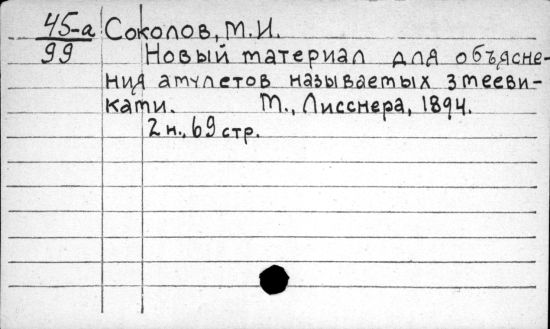 45-а Соколов, М.И.
99 Новый материал для объясне-
ния амулетов называемых змееви-
ками. М., Лисснера, 1894.
2 н., 69 стр.